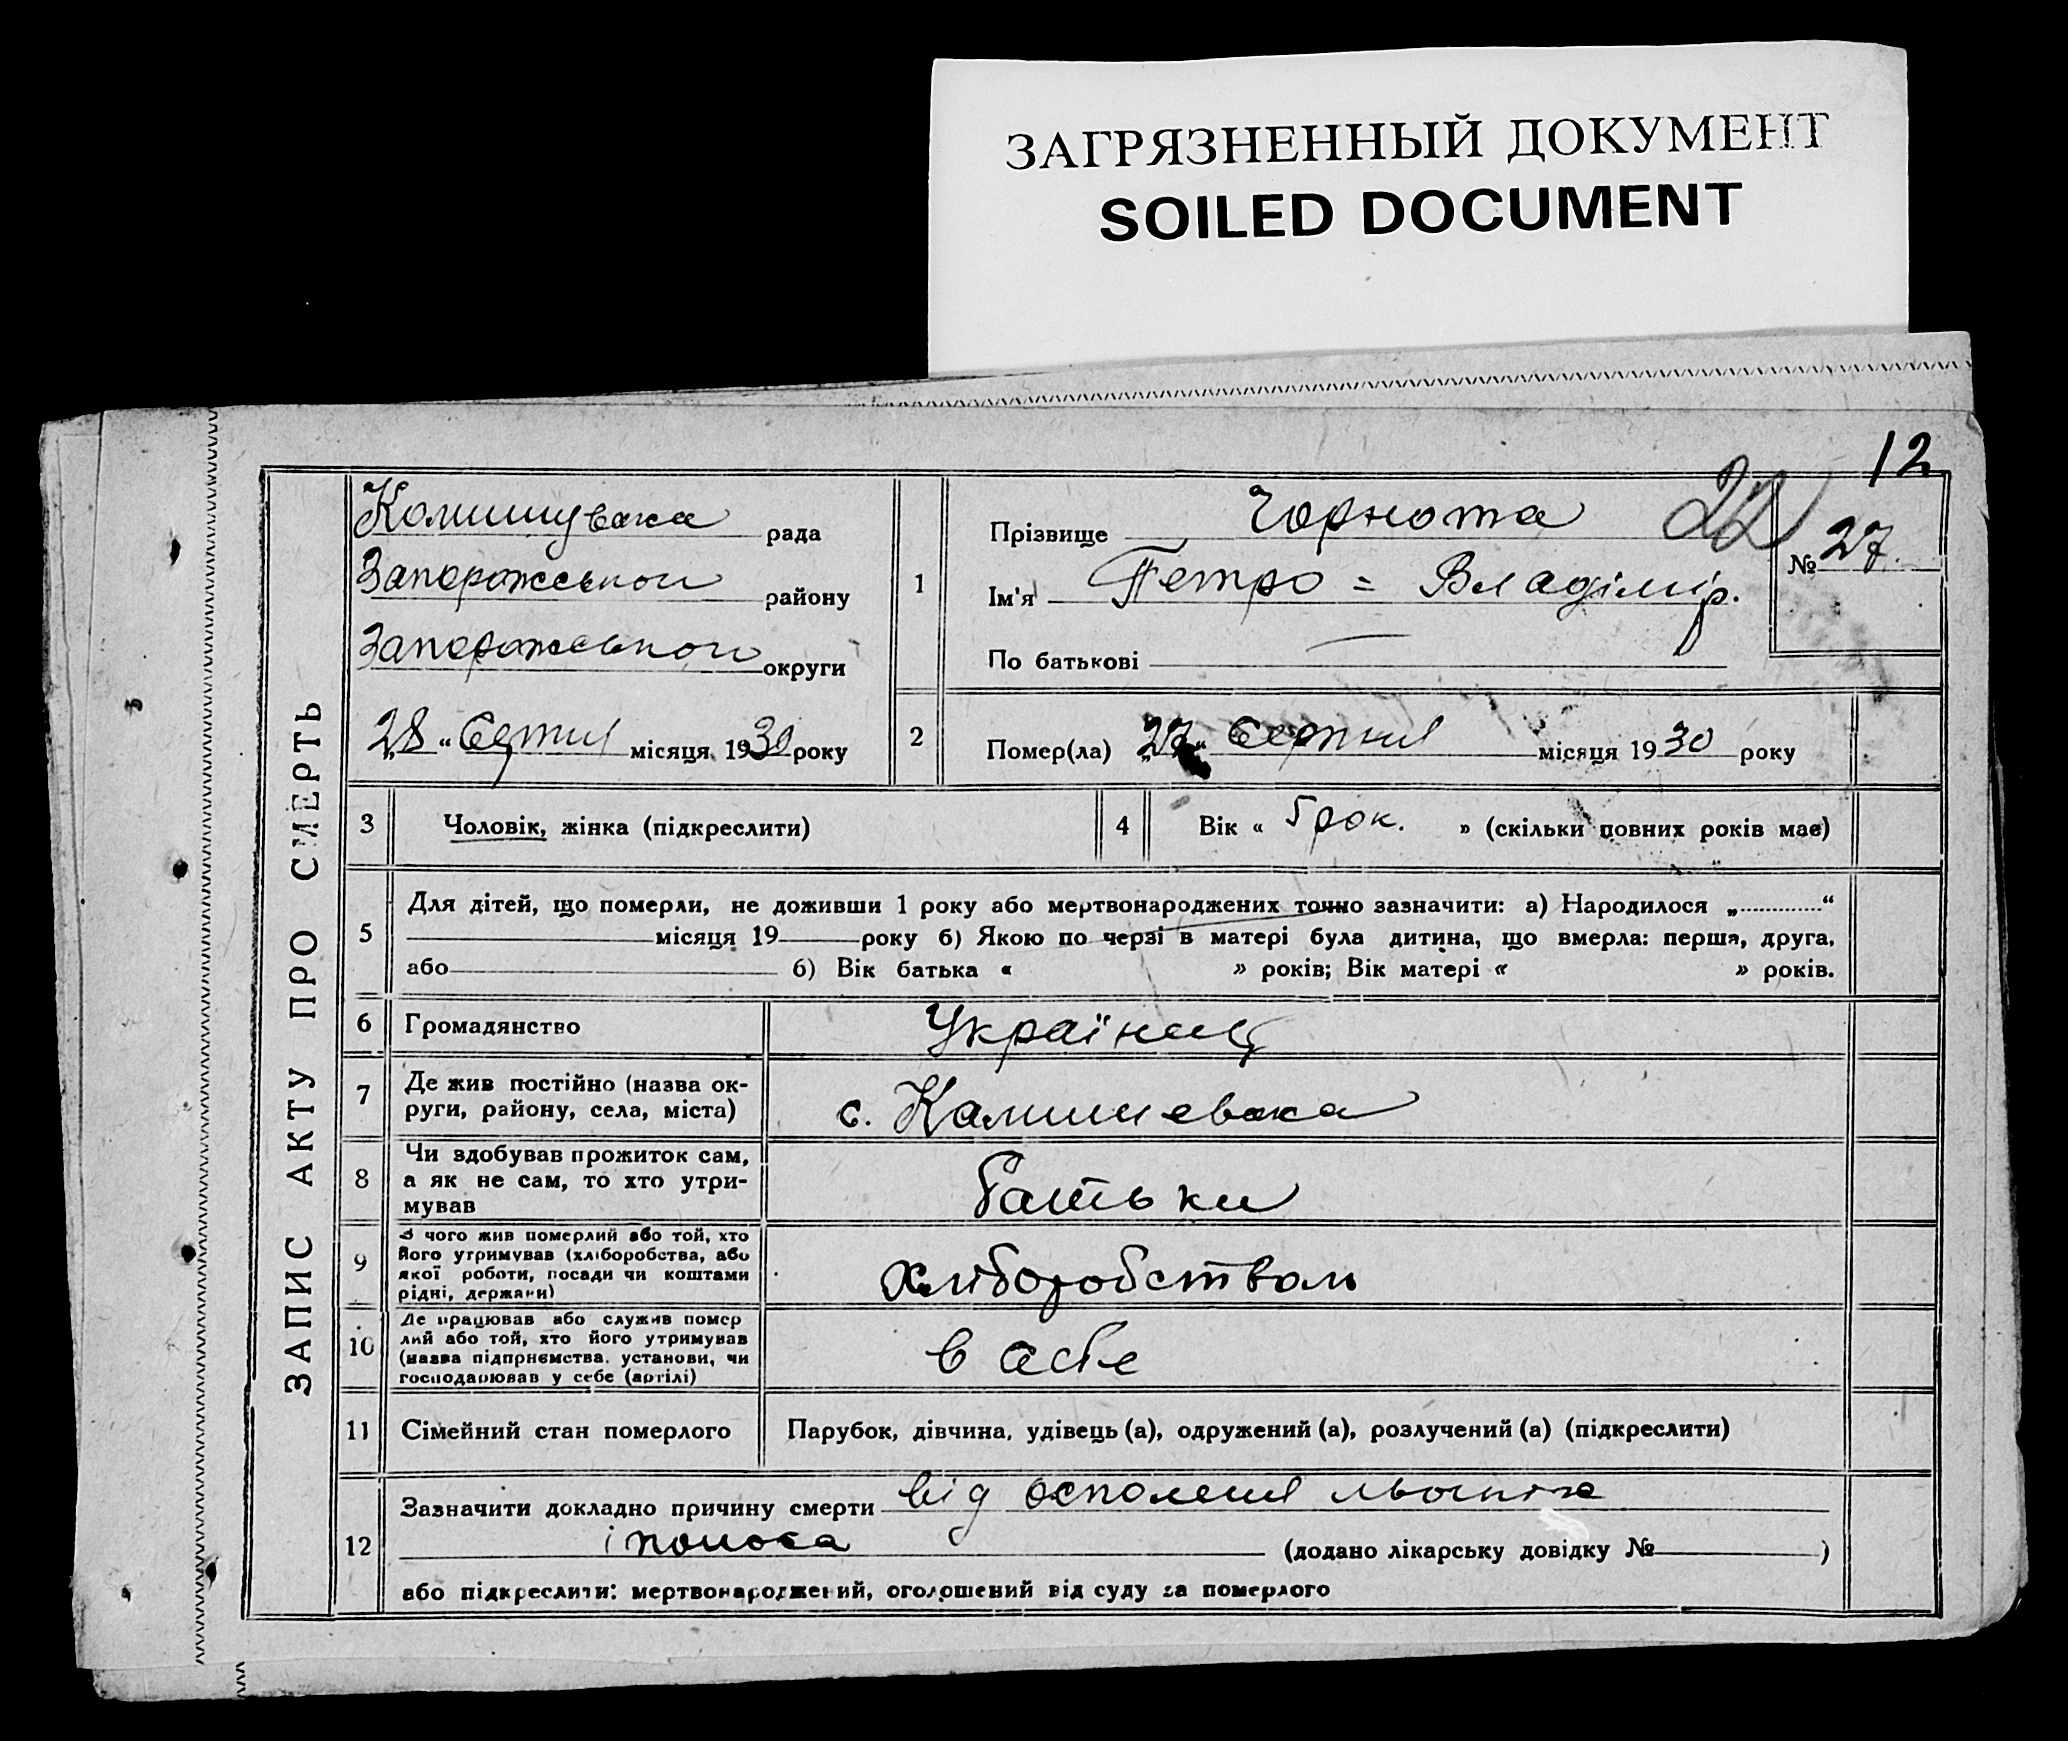 ЗАГРЯЗНЕННЫЙ ДОКУМЕНТ
SOILED DOCUMENT
12
22
№ 27.
ЗАПИС АКТУ ПРО СМЕРТЬ
Комишуваха рада
Запорожської району
Запорожської округи
„28“ Серпня місяця 1930 року
1
Прізвище Чорнота
Ім'я Петро = Владімір.
По батькові
2
Помер(ла) „27“ Серпня місяця 1930 року
3 Чоловік, жінка (підкреслити)
4 Вік « 5 рок. » (скільки повних років має)
5
Для дітей, що померли, не доживши 1 року або мертвонароджених точно зазначити: а) Народилося „ “
місяця 19 року б) Якою по черзі в матері була дитина, що вмерла: перша, друга,
або б) Вік батька « » років; Вік матері « » років.
6 Громадянство Українец
7 Де жив постійно (назва ок-
руги, району, села, міста) с. Камишеваха
8 Чи здобував прожиток сам,
а як не сам, то хто утри-
мував батьки
9 З чого жив померлий або той, хто
його утримував (хліборобства, або
якої роботи, посади чи коштами
рідні, держави) хліборобством
10 Де працював або служив помер
лий або той, хто його утримував
(назва підприємства, установи, чи
господарював у себе (артілі) в себе
11 Сімейний стан померлого Парубок, дівчина, удівець (а), одружений (а), розлучений (а) (підкреслити)
12
Зазначити докладно причину смерти від
і поноса (додано лікарську довідку № )
або підкреслити: мертвонароджений, оголошений від суду за померлого